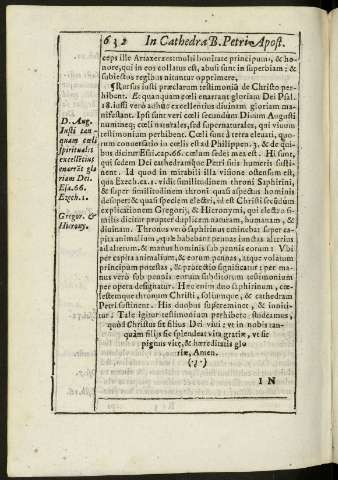 632 In Cathedra B. Petri Apost.
ceps ille Artaxerxes multi bonitate principum, & ho-
nore, qui in eos collatus est, abusi sunt in superbiam: &
subiectos regibus nituntur opprimere.
¶ Rursus iusti præclarum testimoniū de Christo per-
hibent. Et quanquam cœli enarrant gloriam Dei Psal.
18. iusti verò adhuc excellentius diuinam gloriam ma-
nifestant. Ipsi sunt veri cœli secundum Diuum Augusti
num: neq; cœli naturales, sed supernaturales, qui viuum
testimonium perhibent. Cœli sunt à terra eleuati, quo-
rum conuersatio in cœlis est ad Philippen. 3. & de quibus
dicitur Esai. cap. 66. cælum sedes mea est. Hi sunt,
qui sedem Dei cathedramque Petri suis humeris susti-
nent. Id quod in mirabili illa visione ostensum est,
qua Ezech. ca. 1. vidit similitudinem throni Saphirini,
& super similitudinem throni quasi aspectus hominis
desuper: & quasi speciem electri, id est Christi secundum
explicationem Gregorij, & Hieronymi, qui electro si-
milis dicitur propter duplicem naturam, humanam, &
diuinam. Thronus verò saphirinus eminebat super ca-
pita animalium, quæ habebant pennas iunctas alterius
ad alterum, & manus hominis sub pennis eorum: Vbi
per capita animalium, & eorum pennas, atque volatum
principum potestas, & protectio significatur: per ma-
nus verò sub pennis eorum subditorum testimonium
per opera designatur. Hæc enim duo saphirinum, cœ-
lestemque thronum Christi, soliumque, & cathedram
Petri sustinent. His duobus supereminet, & inniti-
tur. Tale igitur testimonium perhibere studeamus,
quòd Christus sit filius Dei viui: vt in nobis tan-
quàm filijs sic splendeat vita gratiæ, vt sic
pignus vitæ, & hæreditatis glo
riæ, Amen.
(.?.)
IN
D. Aug.
Iusti tan-
quam cœli
spirituales
excellētius
enarrāt glo
riam Dei.
Esa. 66.
Ezech. 1.
Gregor. &
Hierony.